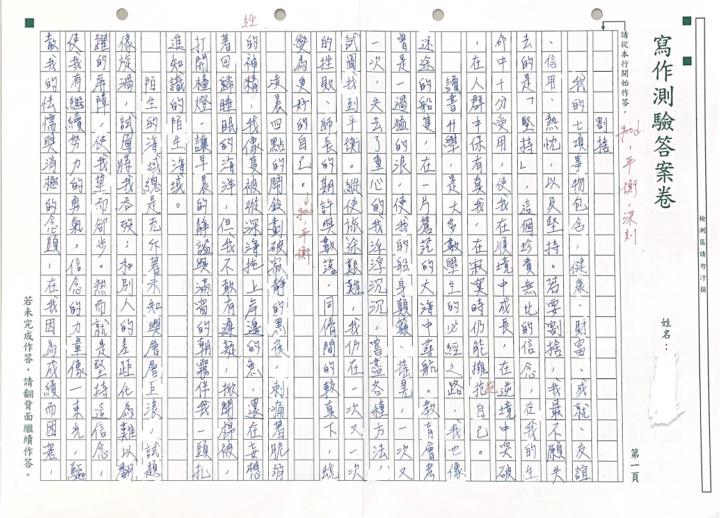 寫作測驗答案卷
檢測區請勿汙損
姓名：
第一頁
請從本行開始作答。
good，平衡，深刻
割捨
我的七項事物包含：健康、財富、成就、友誼
、信用、熱忱，以及堅持。若要割捨，我最不願失
去的是「堅持」，這個珍貴無比的信念，在我的生
命中十分受用，使我在順境中成長，在逆境中突破
，在人群中保有真我，在寂寞時仍能擁抱自己。
讀書升學，是大多數學生的必經之路，我也像
迷途的船隻，在一片蒼茫的大海中尋航。教育會考
曾是一過猛的浪，使我的船身顛簸、搖晃，一次又
一次，失去了重心的我浮浮沉沉，嘗盡各種方法，
試圖找到平衡。縱使旅途艱難，我們在一次又一次
的挫敗、師長的期許與鼓勵、同儕間的較真下，蛻
變為更好的自己。
good，平衡
凌晨四點的鬧鈴劃破寂靜的黑夜，刺痛著脆弱
的神經，我像隻被從深海拖上岸邊的魚，還在妄想
經
著回歸睡眠的海洋，但我不敢有遲疑，掀開棉被，
打開檯燈，讓早晨的靜謐與滿窗的朝露伴我一頭扎
進知識的陌生海域。
陌生的海域總是充斥著未知與層層巨浪，試題
像旋渦，試圖將我吞歿；和別人的差距化為難以翻
躍的屏障，使我望而卻步。然而就是堅持這信念，
使我有繼續努力的勇氣，信念的力量像一束光，驅
散我的怯懦與消極的念頭，在我因為成績而困窘，
若未完成作答，請翻背面繼續作答。